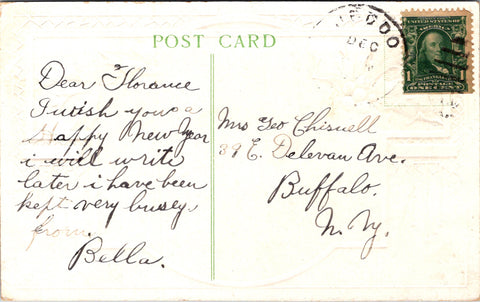 POST CARD
DEC
UNITED STATES OF AMERICA
1 1
ONE CENT
Dear Florance
I wish you a
Happy New Year
i will write
later i have been
kept very busey
from
Bella.
Mrs Geo Chisnell
39 E. Delevan Ave.
Buffalo.
N. Ny.